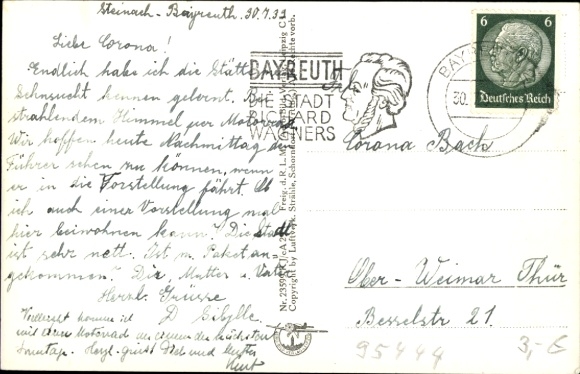 Steinach-Bayreuth. 30.7.39
Liebe Corona!
Endlich habe ich die Stätte
Sehnsucht kennen gelernt. Bei
strahlendem Himmel per Motorrad
Wir hoffen heute Nachmittag den
Führer sehen zu können, wenn
er in die Vorstellung fährt. Ob
ich auch einer Vorstellung mal
hier beiwohnen kann? Die Stadt
ist sehr nett. Ist m. Paket an-
gekommen? Dir, Mutter u. Vater
Herzl. Grüsse
D Sibylle.
Vielleicht komme ich
mit dem Motorrad an einem der nächsten
Sonntage. Herzl. grüßt Dich und Mutter
Kurt
BAYREUTH
DIE STADT
RICHARD
WAGNERS
BAYREUTH
30.
6 6
Deutsches Reich
Corona Bach
Ober-Weimar Thür
Besselstr 21.
95444
3,- €
Freig. d. R. L. M.
Copyright by Luftverk. Strähle, Schorndorf